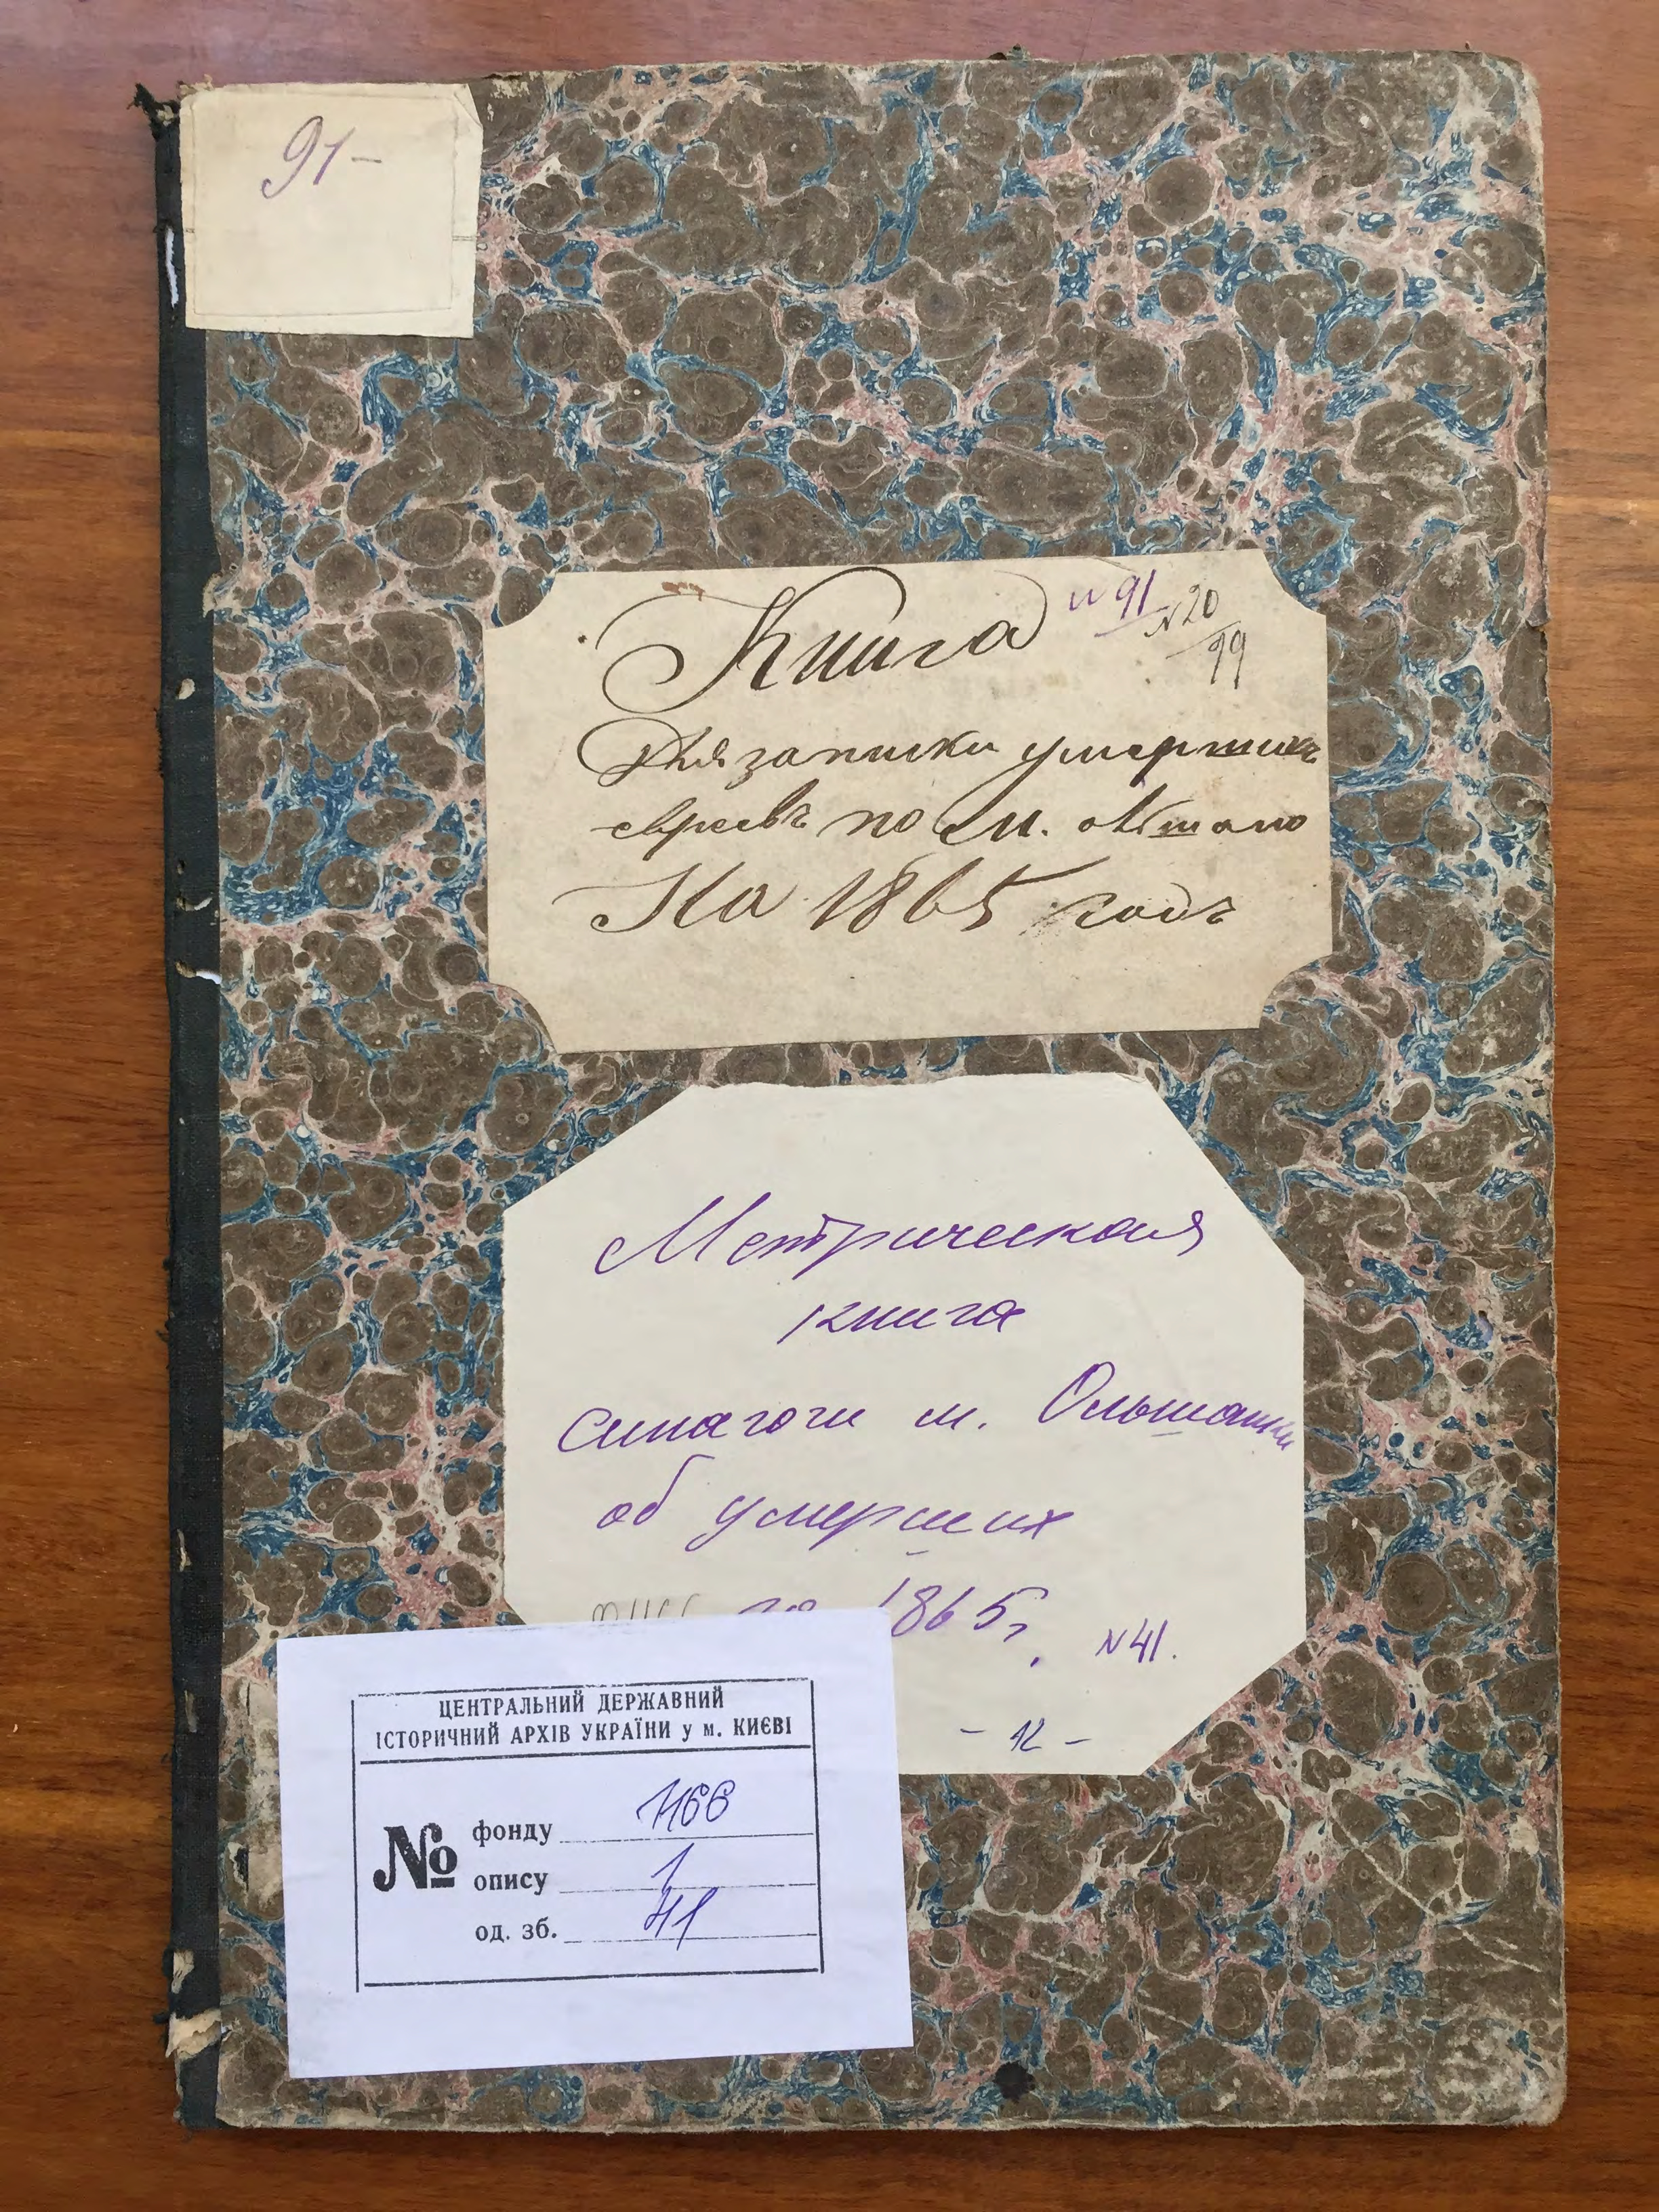 91-
Книга
№ 91
№ 20
99
Для записки умершихъ
евреевъ по м.
На 1865 годъ
Метрическая
книга
синагоги м. Ольшаны
об умерших
1865г.
№41.
- 12 -
ЦЕНТРАЛЬНИЙ ДЕРЖАВНИЙ
ІСТОРИЧНИЙ АРХІВ УКРАЇНИ у м. КИЄВІ
№
фонду 1166
опису 1
од. зб. 41